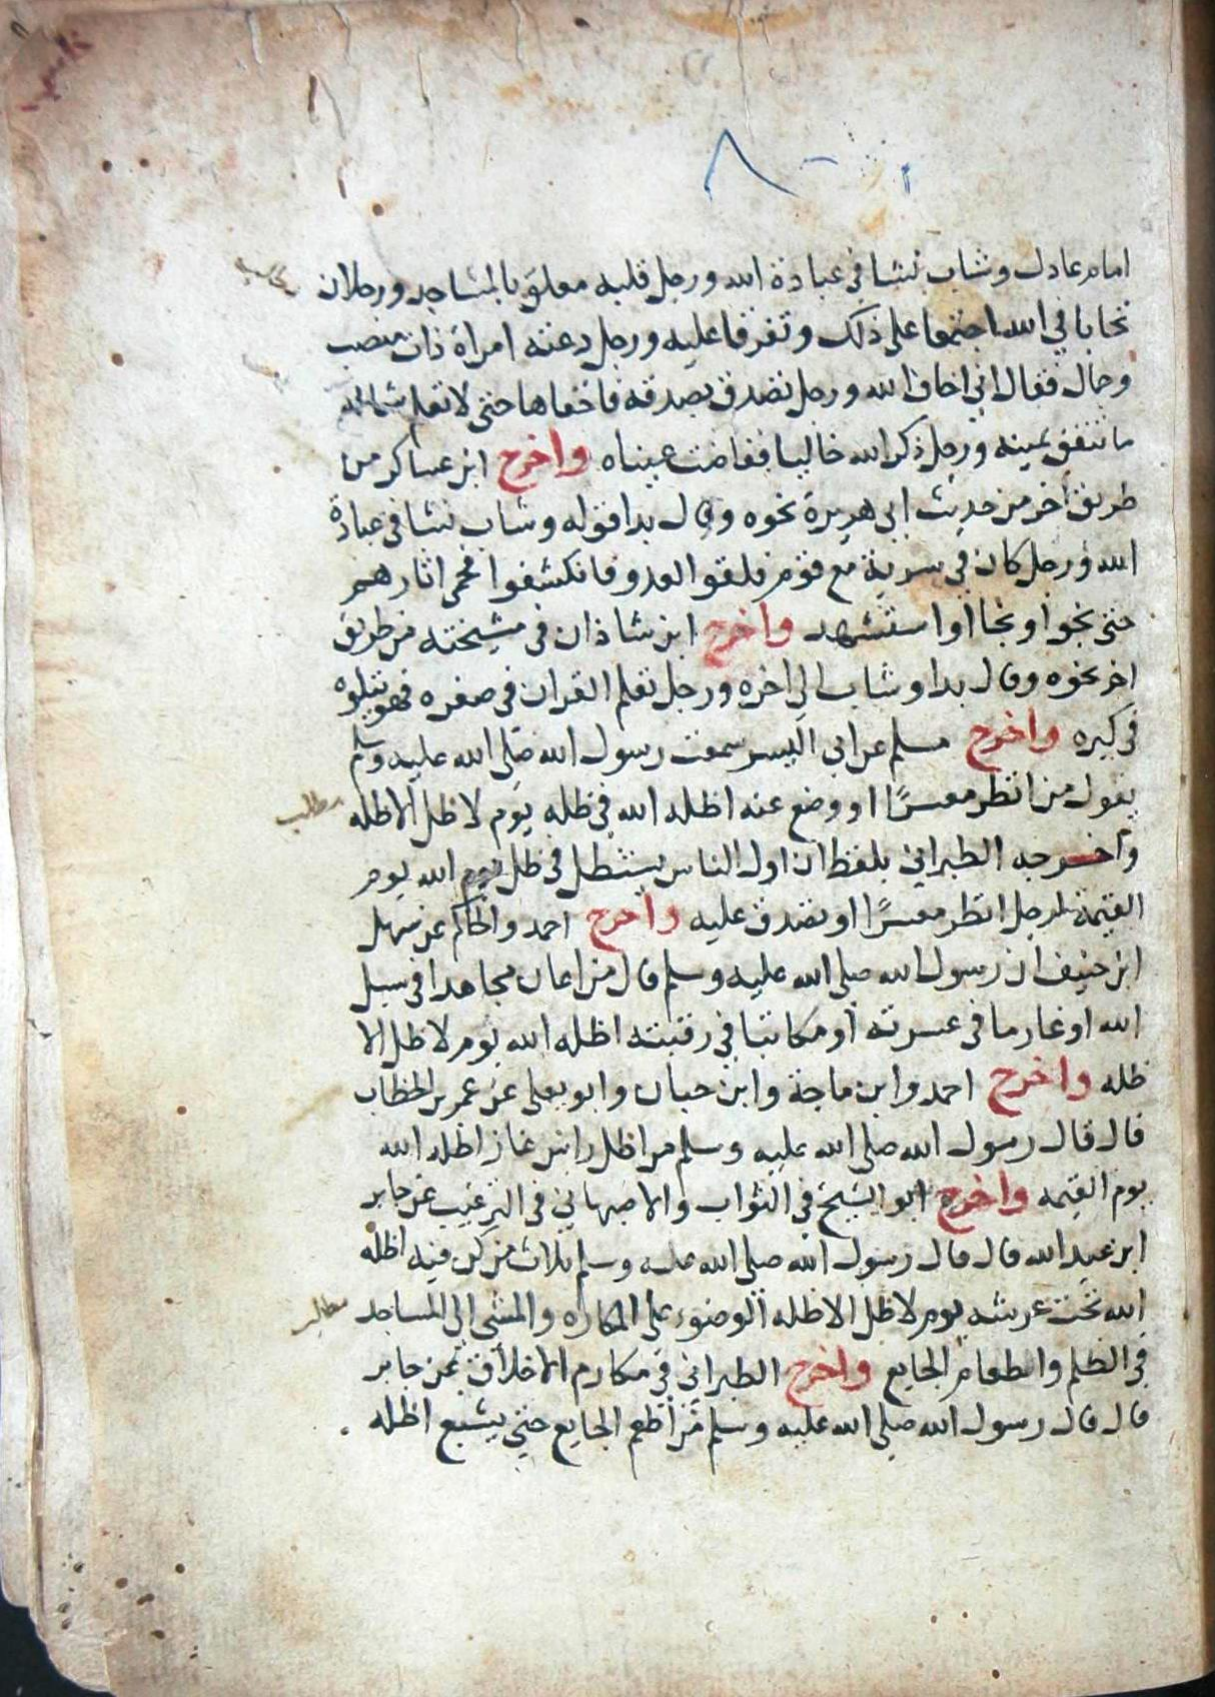 امام عادل وشاب نشا في عبادة الله ورجل قلبه معلق بالمساجد ورجلان
تحابا في الله اجتمعا على ذلك وتفرقا عليه ورجل دعته امراة ذات منصب
وجمال فقال اني اخاف الله ورجل تصدق بصدقة فاخفاها حتى لا تعلم شماله
ما تنفق يمينه ورجل ذكر الله خاليا ففاضت عيناه واخرج ابن عساكر من
طريق أخر من حديث ابي هريرة نحوه وقال بدا قوله وشاب نشا في عبادة
الله ورجل كان في سرية مع قوم فلقوا العدو فانكشفوا فحمى اثارهم
حتى نجوا ونجا او استشهد واخرج ابن شاذان في مشيخته من طريق
اخر نحوه وقال بدا وشاب الى اخره ورجل تعلم القران في صغره فهو يتلوه
في كبره واخرج مسلم عن ابي اليسر سمعت رسول الله صلى الله عليه وسلم
يقول من انظر معسرًا او وضع عنه اظله الله في ظله يوم لا ظل الا ظله
مطلب
وأخرجه الطبراني بلفظ ان اول الناس يستظل في ظل الله يوم
القيمة لرجل انظر معسرًا او تصدق عليه واخرج احمد والحاكم عن سهل
ابن حنيف ان رسول الله صلى الله عليه وسلم قال من اعان مجاهدا في سبيل
الله او غارما في عسرته أو مكاتبا في رقبته اظله الله يوم لا ظل الا
ظله واخرج احمد وابن ماجة وابن حبان وابو يعلى عن عمر بن الخطاب
قال قال رسول الله صلى الله عليه وسلم من اظل راس غاز اظله الله
يوم القيمه واخرج ابو الشيخ في الثواب والاصبهاني في الترغيب عن جابر
ابن عبد الله قال قال رسول الله صلى الله عليه وسلم ثلاث من كن فيه اظله
الله تحت عرشه يوم لا ظل الا ظله الوضوء على المكاره والمشي الى المساجد
مطلب
في الظلم واطعام الجايع واخرج الطبراني في مكارم الاخلاق عن جابر
قال قال رسول الله صلى الله عليه وسلم من أطعم الجايع حتى يشبع اظله